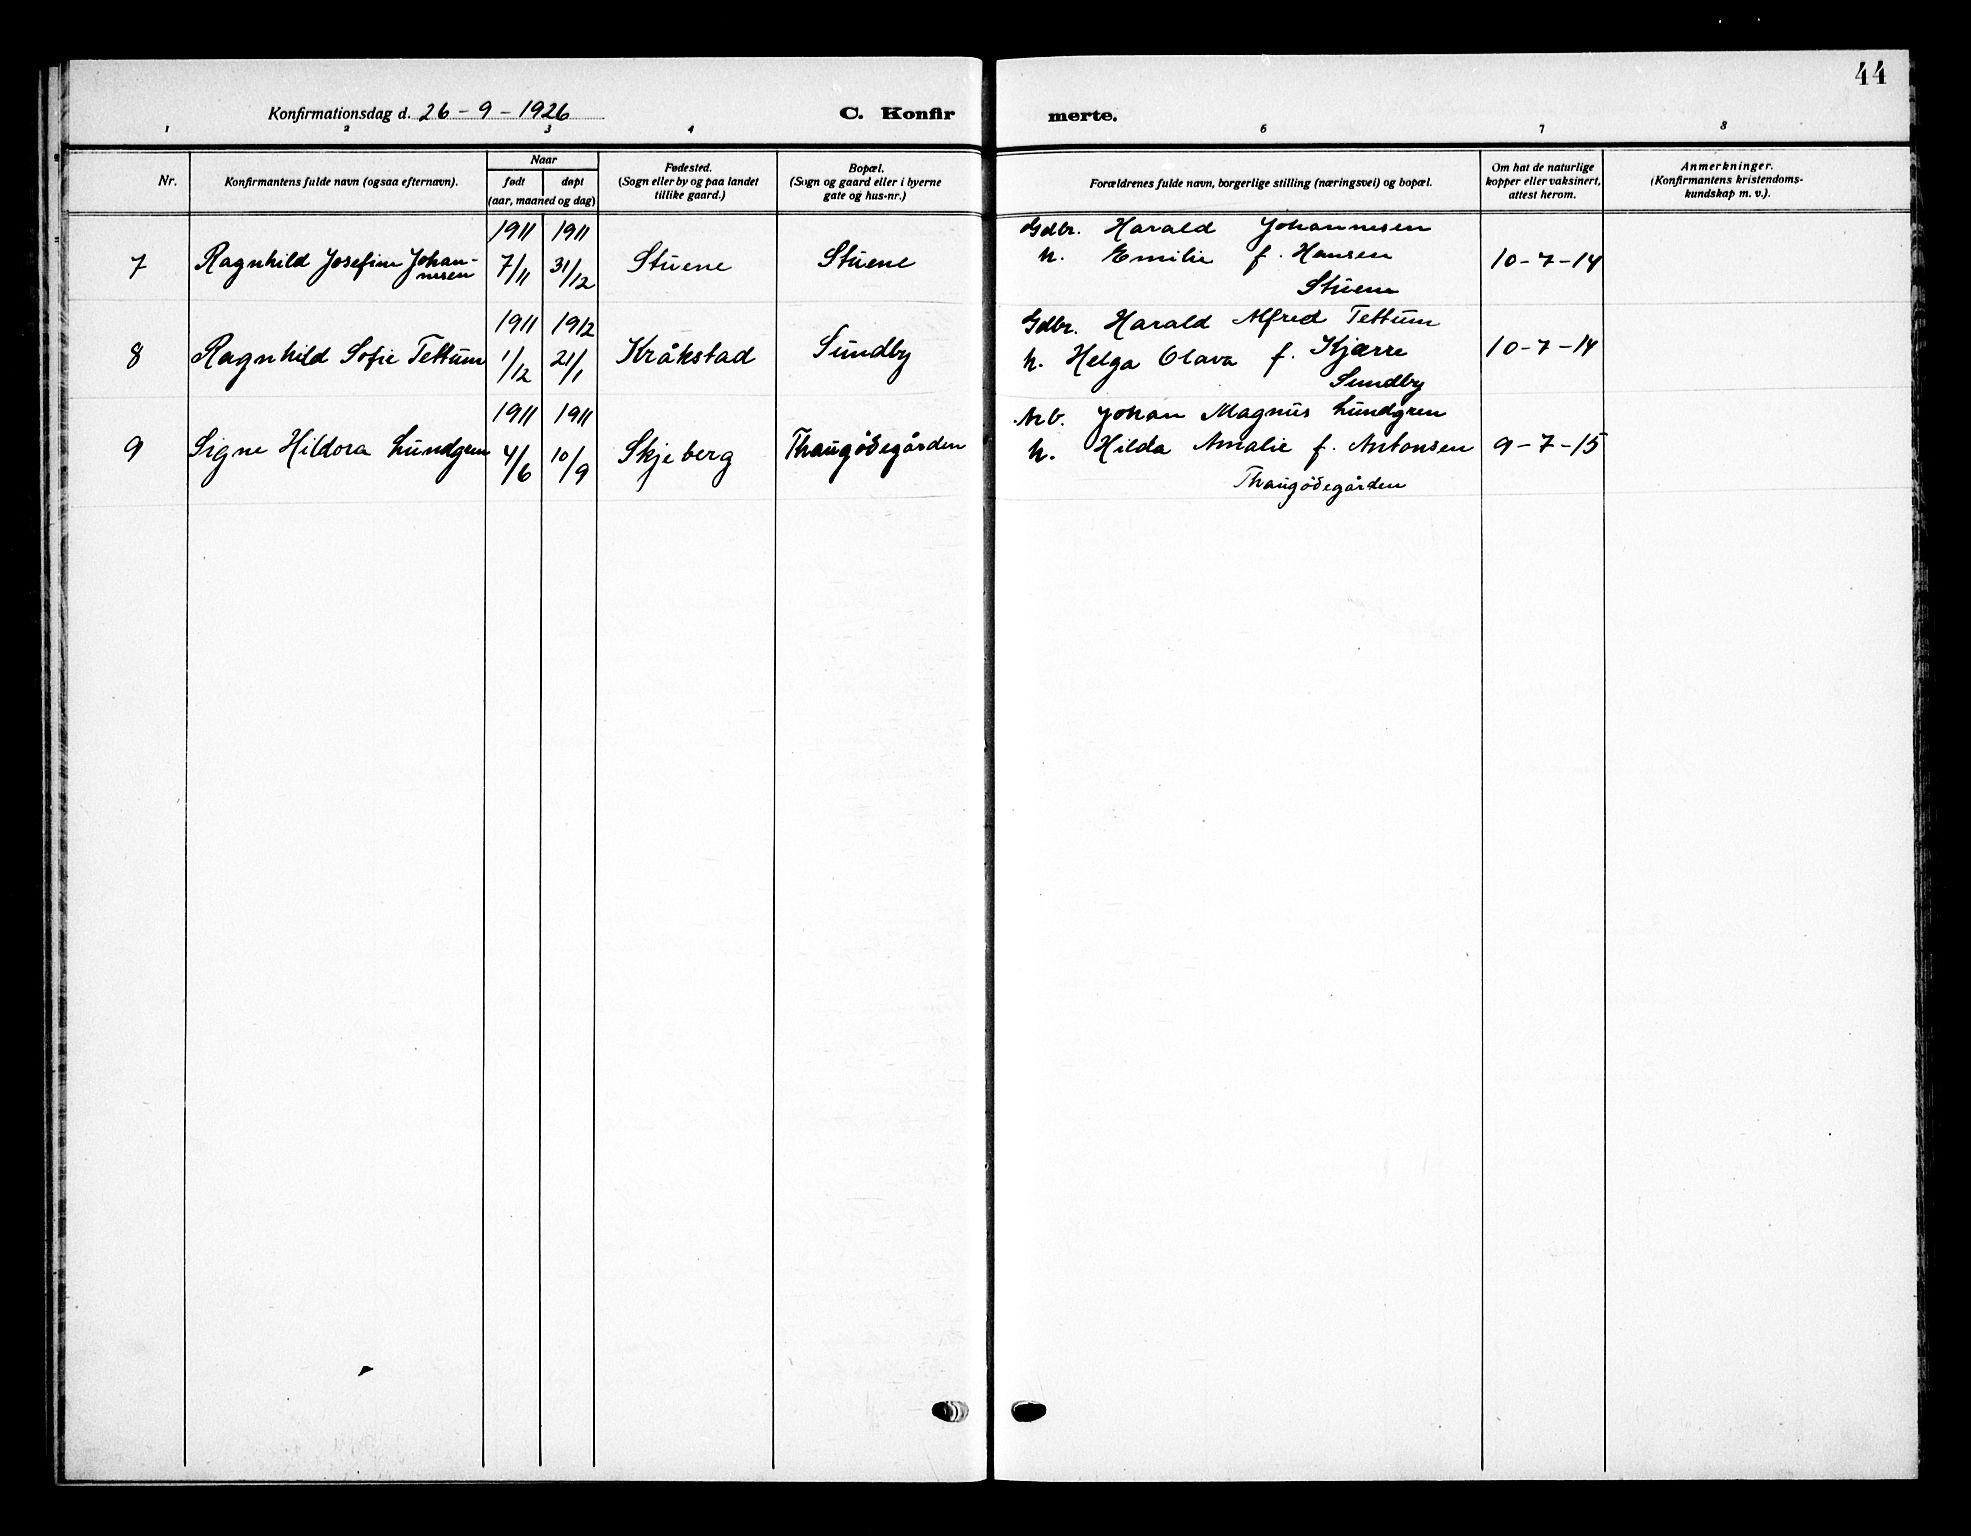 44
Konfirmationsdag d. 26 - 9 - 1926 C. Konfir merte.
1 2 3 4 6 7 8
Nr.
Konfirmantens fulde navn (ogsaa efternavn).
Naar
født døpt
(aar, maaned og dag)
Fødested.
(Sogn eller by og paa landet
tillike gaard.)
Bopæl.
(Sogn og gaard eller i byerne
gate og hus-nr.)
Forældrenes fulde navn, borgerlige stilling (næringsvei) og bopæl.
Om hat de naturlige
kopper eller vaksinert,
attest herom.
Anmerkninger.
(Konfirmantens kristendoms-
kundskap m. v.).
1911 1911 Gdbr. Harald Johannesen
7 Ragnhild Josefine Johan- 7/11 31/12 Stuene Stuene h. Emilie f. Hansen 10-7-14
nesen Stuene
1911 1912 Gdbr. Harald Alfred Tettum
8 Ragnhild Sofie Tettum 1/12 21/1 Kråkstad Sundby h. Helga Olava f. Kjærre 10-7-14
Sundby
1911 1911 Arb. Johan Magnus Lundgren
9 Signe Hildora Lundgren 4/6 10/9 Skjeberg Thaugødegården h. Hilda Amalie f. Antonsen 9-7-15
Thaugødegården